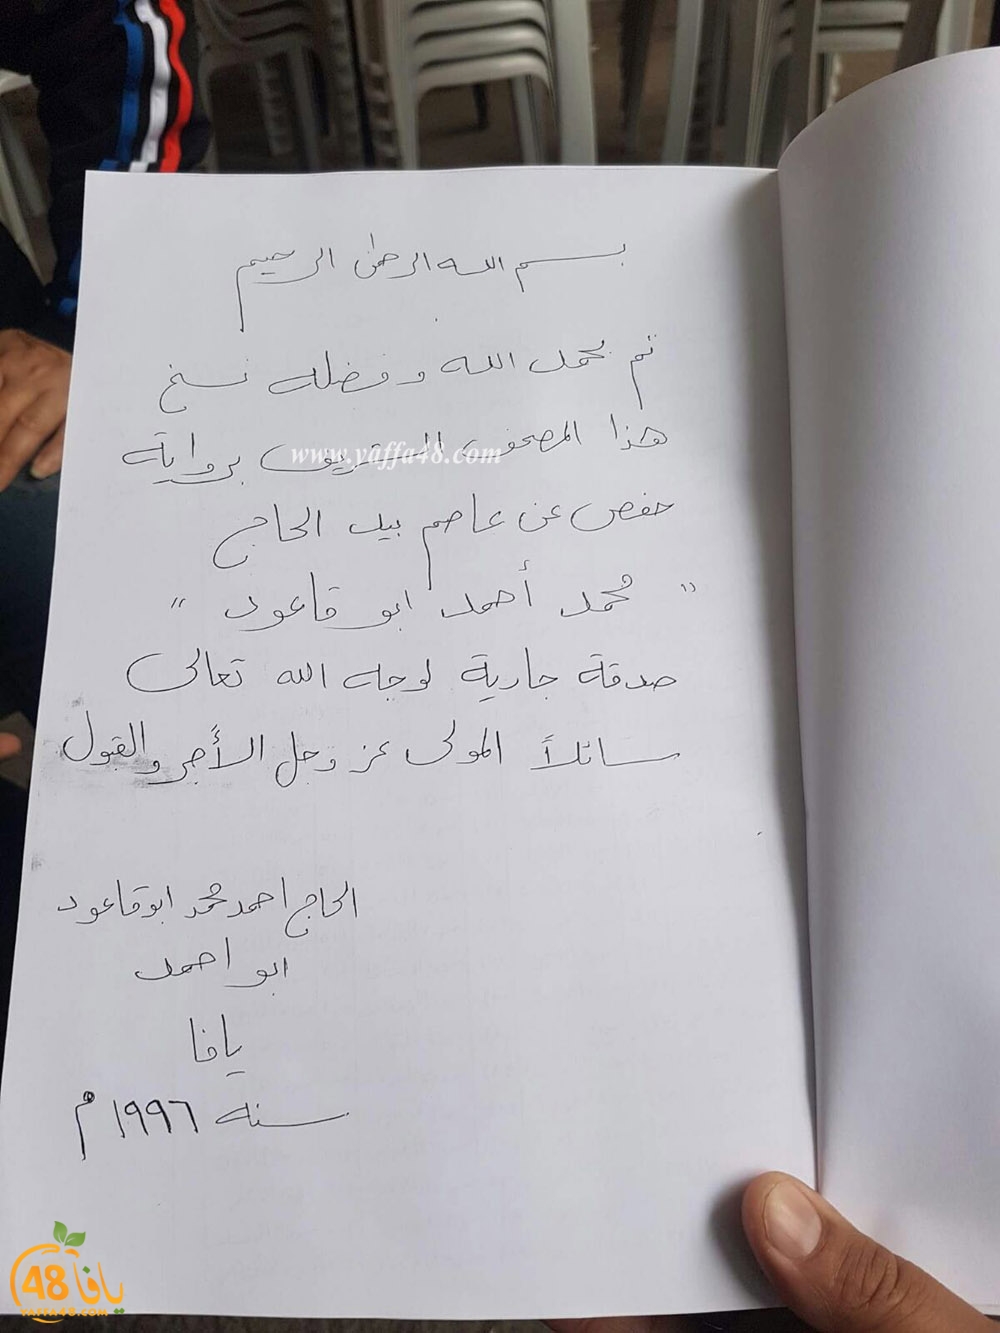 بسم الله الرحمن الرحيم
تم بحمد الله وفضله نسخ
هذا المصحف الشريف برواية
www.yaffa48.com
حفص عن عاصم بيد الحاج
" محمد أحمد ابو قاعود "
صدقة جارية لوجه الله تعالى
سائلاً المولى عز وجل الأجر والقبول
الحاج احمد محمد ابو قاعود
ابو احمد
يافا
سنه ١٩٩٦ م
يافا 48
YAFFA48.COM